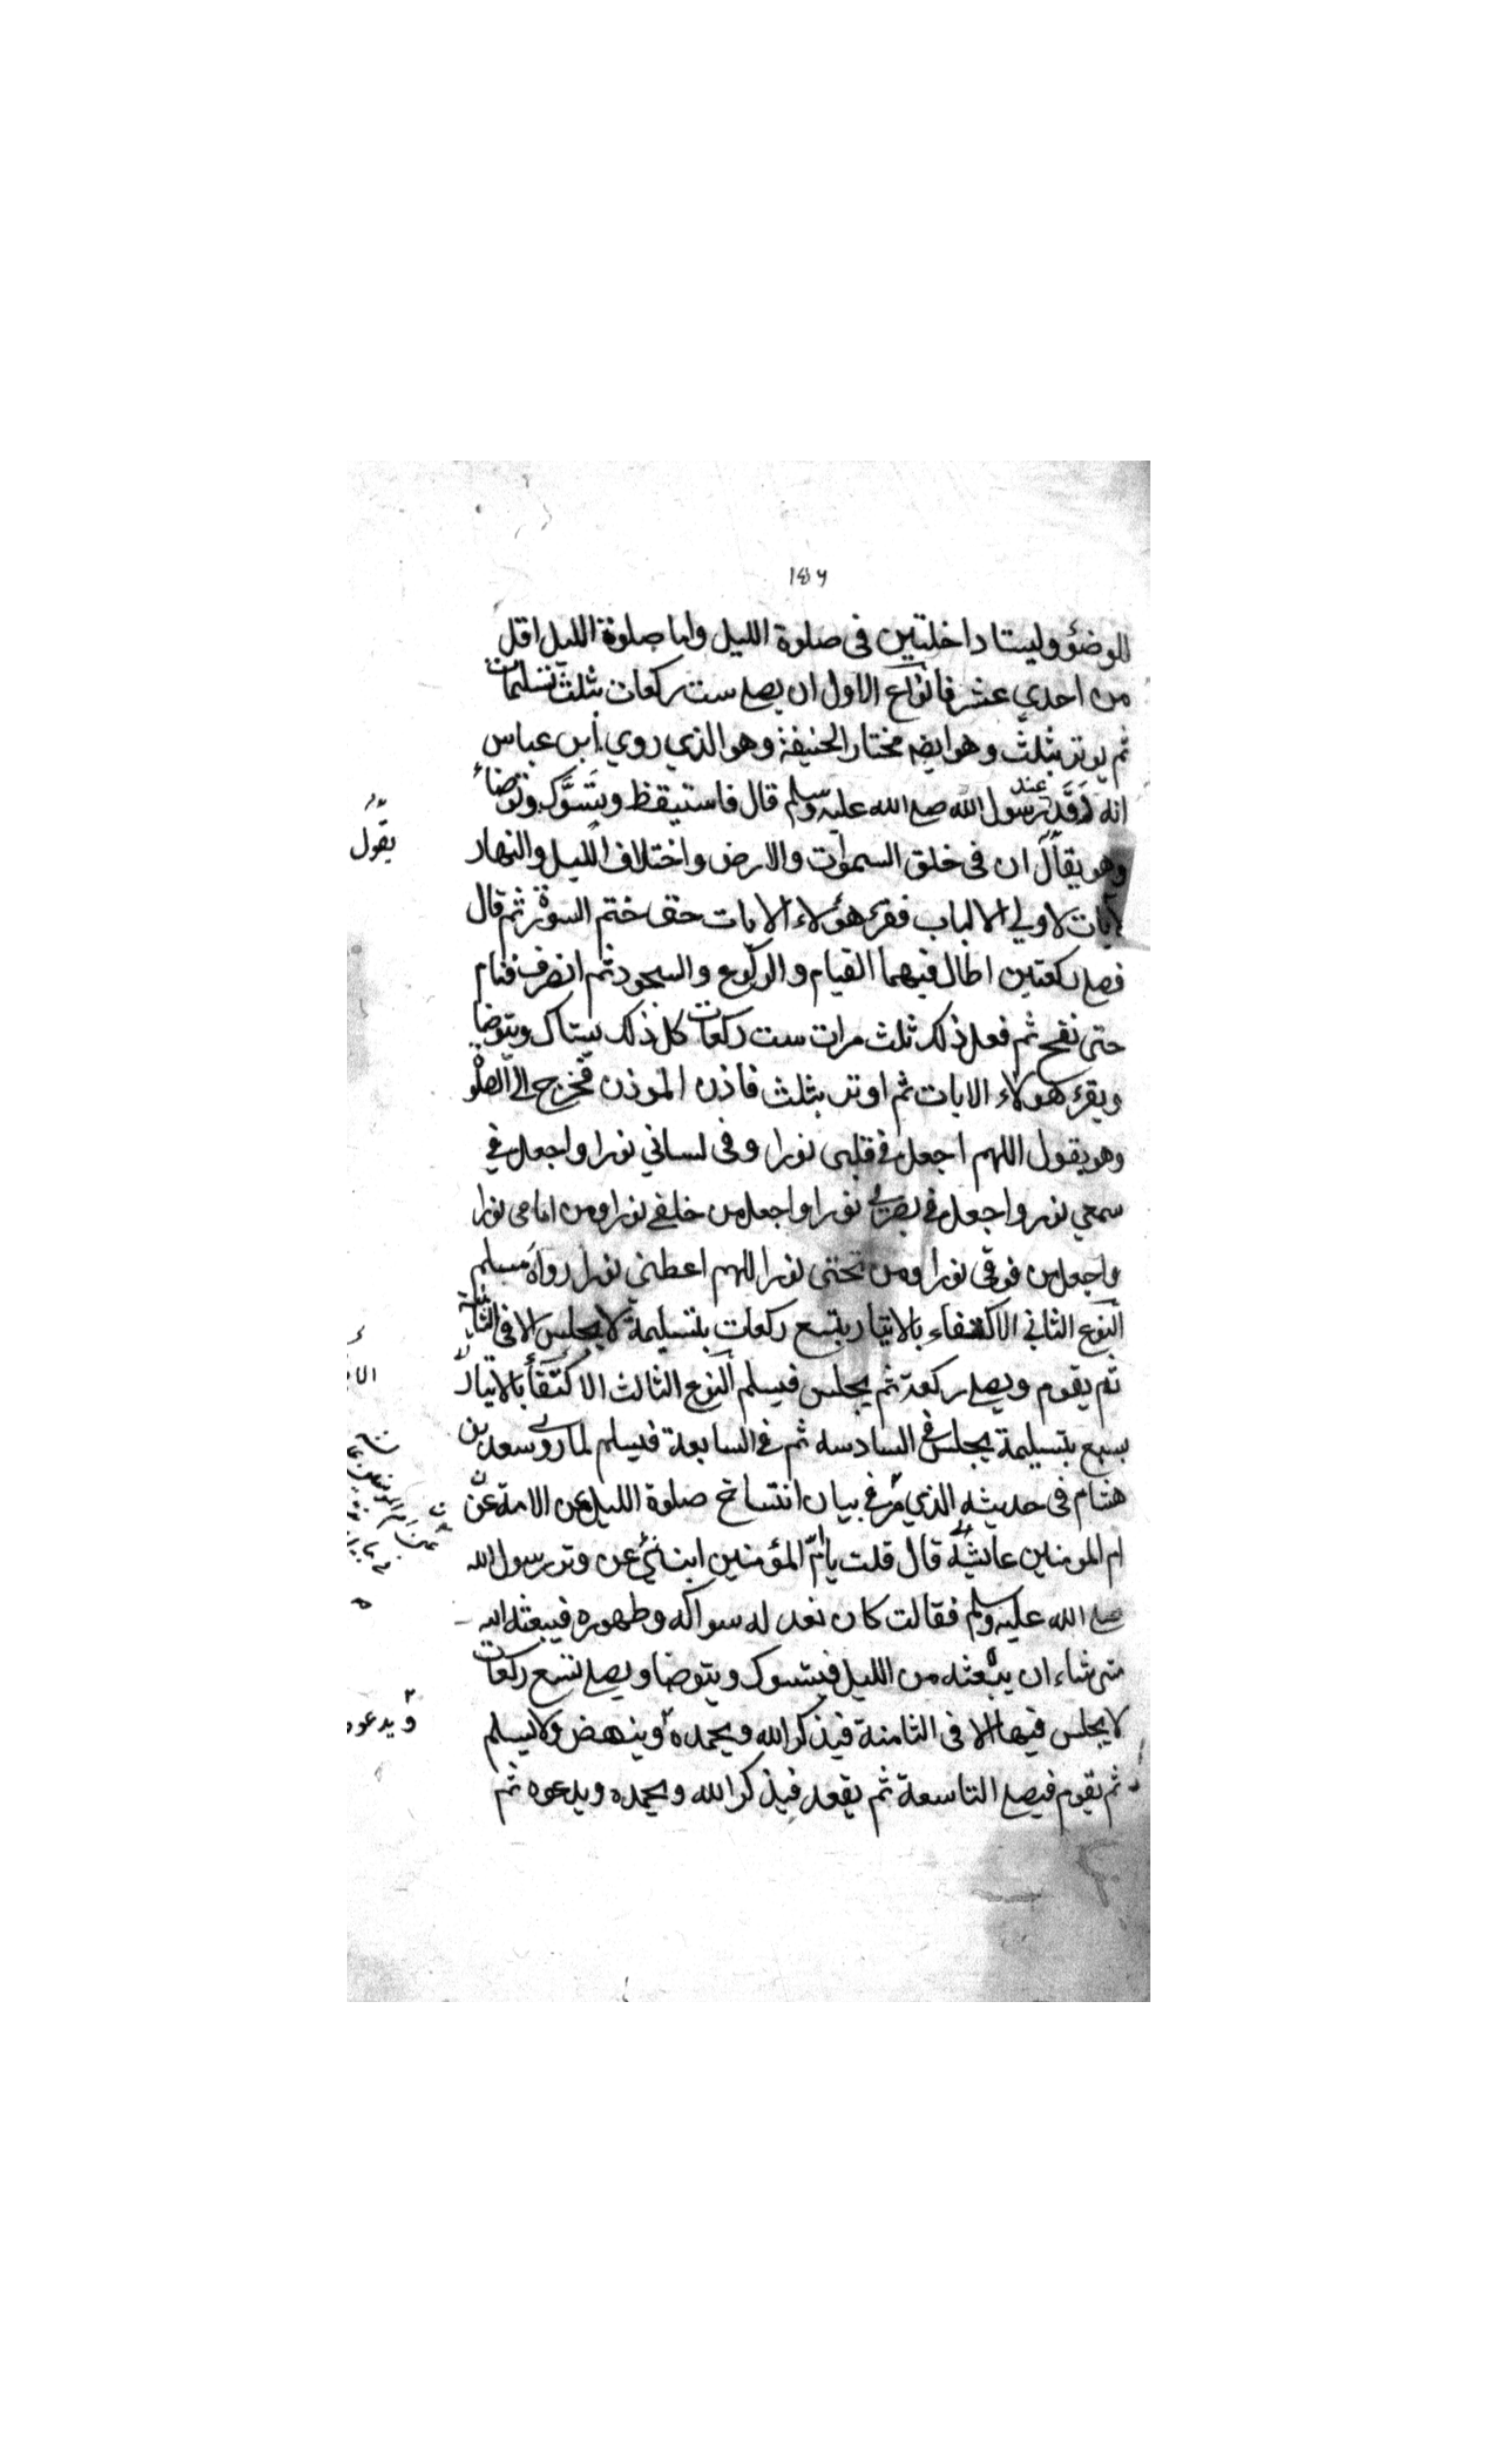 ١٥٦
للوضؤ وليستا داخلتين فى صلوة الليل واما صلوة الليل اقل
من احدي عشر فانواع الاول ان يصلے ست ركعات بثلث تسليمات
ثم يوتر بثلث وهو ايضه مختار الحنيفة وهو الذي روي ابن عباس
انه رقد عند رسول الله صلے الله عليه وسلم قال فاستيقظ ويتسوك وتوضاء
وهو يقال ان فى خلق السموات والارض واختلاف الليل والنهار
يقول
لايات لاولي الالباب فقرء هؤلاء الايات حتى ختم السورة ثم قال
فصلے ركعتين اطال فيهما القيام والركوع والسجود ثم انصرف فنام
حتى نفح ثم فعل ذلك ثلث مرات ست ركعات كل ذلك يستاك ويتوضا
ويقرء هولاء الايات ثم اوتر بثلث فاذن الموذن فخرج الى الصلو
وهو يقول اللهم اجعل في قلبى نورا وفى لساني نورا واجعل في
سمعي نورا واجعل في بصري نورا واجعل من خلفے نورا ومن امامى نورا
واجعل من فوقى نورا ومن تحتى نورا اللهم اعطنى نورا رواه مسلم
النوع الثاني الاكتفاء بالايتار بتسع ركعات بتسليمة لا يجلس الا فى الثامنة
ثم يقوم ويصلے ركعة ثم يجلس فيسلم النوع الثالث الاكتفأ بالايتار
بسبع بتسليمة يجلس فى السادسه ثم فى السابعة فيسلم لما روي سعد بن
هشام فى حديثه الذي مر في بيان انتساخ صلوة الليل عن الامة عن
ام المومنين عايشة قال قلت يا ام المؤمنين انبئني عن وتر رسول الله
صلے الله عليه وسلم فقالت كان نعد له سواكه وطهوره فيبعثه الله
متى شاء ان يبعثه من الليل فيتسوك ويتوضا ويصلے تسع ركعات
لا يجلس فيها الا فى الثامنة فيذكر الله ويحمده وينهض ولا يسلم
ويدعوه
ثم يقوم فيصلے التاسعة ثم يقعد فيذكر الله ويحمده ويدعوه ثم